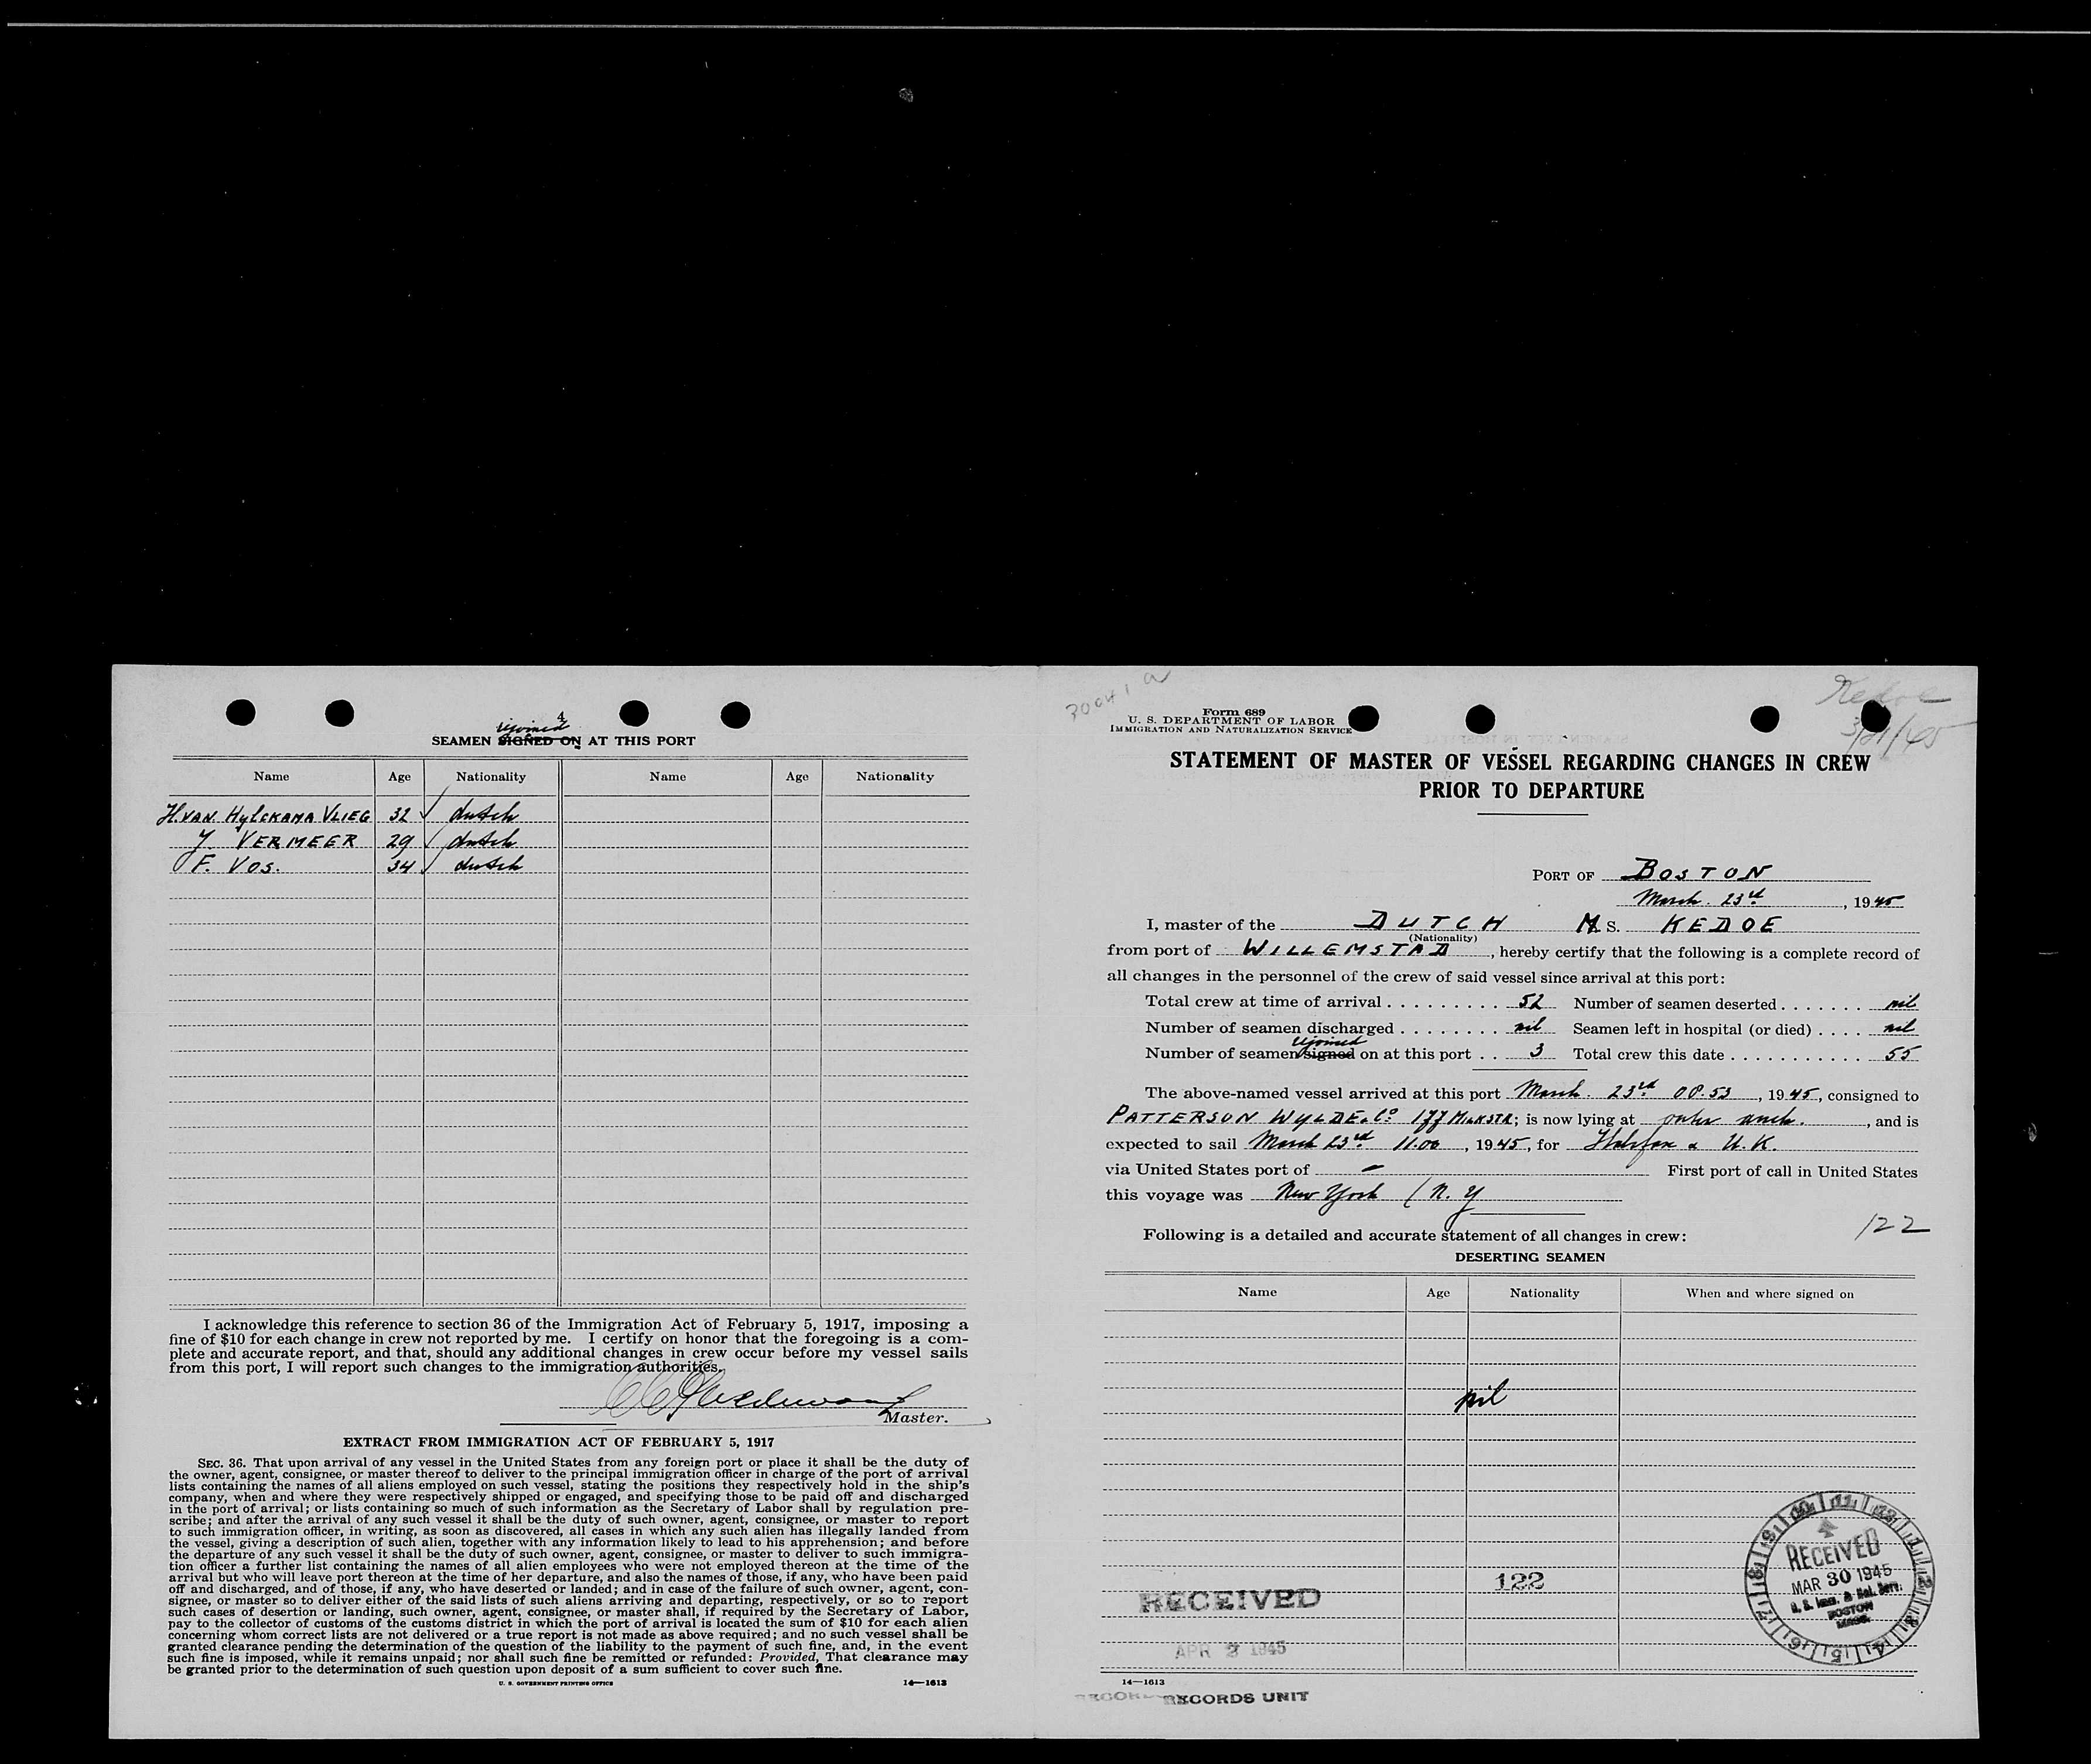 4
rejoined
SEAMEN SIGNED ON AT THIS PORT
Name Age Nationality Name Age Nationality
H. VAN HYLCKAMA VLIEG 32 dutch
J. VERMEER 29 dutch
F. VOS. 34 dutch
I acknowledge this reference to section 36 of the Immigration Act of February 5, 1917, imposing a
fine of $10 for each change in crew not reported by me. I certify on honor that the foregoing is a com-
plete and accurate report, and that, should any additional changes in crew occur before my vessel sails
from this port, I will report such changes to the immigration authorities.
Master.
EXTRACT FROM IMMIGRATION ACT OF FEBRUARY 5, 1917
SEC. 36. That upon arrival of any vessel in the United States from any foreign port or place it shall be the duty of
the owner, agent, consignee, or master thereof to deliver to the principal immigration officer in charge of the port of arrival
lists containing the names of all aliens employed on such vessel, stating the positions they respectively hold in the ship's
company, when and where they were respectively shipped or engaged, and specifying those to be paid off and discharged
in the port of arrival; or lists containing so much of such information as the Secretary of Labor shall by regulation pre-
scribe; and after the arrival of any such vessel it shall be the duty of such owner, agent, consignee, or master to report
to such immigration officer, in writing, as soon as discovered, all cases in which any such alien has illegally landed from
the vessel, giving a description of such alien, together with any information likely to lead to his apprehension; and before
the departure of any such vessel it shall be the duty of such owner, agent, consignee, or master to deliver to such immigra-
tion officer a further list containing the names of all alien employees who were not employed thereon at the time of the
arrival but who will leave port thereon at the time of her departure, and also the names of those, if any, who have been paid
off and discharged, and of those, if any, who have deserted or landed; and in case of the failure of such owner, agent, con-
signee, or master so to deliver either of the said lists of such aliens arriving and departing, respectively, or so to report
such cases of desertion or landing, such owner, agent, consignee, or master shall, if required by the Secretary of Labor,
pay to the collector of customs of the customs district in which the port of arrival is located the sum of $10 for each alien
concerning whom correct lists are not delivered or a true report is not made as above required; and no such vessel shall be
granted clearance pending the determination of the question of the liability to the payment of such fine, and, in the event
such fine is imposed, while it remains unpaid; nor shall such fine be remitted or refunded: Provided, That clearance may
be granted prior to the determination of such question upon deposit of a sum sufficient to cover such fine.
U. S. GOVERNMENT PRINTING OFFICE 14—1613
Kedoe
Form 689
U. S. DEPARTMENT OF LABOR
IMMIGRATION AND NATURALIZATION SERVICE
STATEMENT OF MASTER OF VESSEL REGARDING CHANGES IN CREW
PRIOR TO DEPARTURE
PORT OF BOSTON
March. 23rd, 1945
I, master of the DUTCH M. S. KEDOE
(Nationality)
from port of WILLEMSTAD, hereby certify that the following is a complete record of
all changes in the personnel of the crew of said vessel since arrival at this port:
Total crew at time of arrival . . . . . . . . . . 52 Number of seamen deserted . . . . . . . nil
Number of seamen discharged . . . . . . . . nil Seamen left in hospital (or died) . . . . nil
rejoined
Number of seamen signed on at this port . . 3 Total crew this date . . . . . . . . . . . 55
The above-named vessel arrived at this port March. 23rd 08.53, 1945, consigned to
PATTERSON WYLDE & Co 177 MILKSTR; is now lying at outer anch., and is
expected to sail March 23rd 11.00, 1945, for Halifax & U.K.
via United States port of — First port of call in United States
this voyage was New York / N. Y
122
Following is a detailed and accurate statement of all changes in crew:
DESERTING SEAMEN
Name Age Nationality When and where signed on
nil
122
RECEIVED
APR 2 1945
RECEIVED
MAR 30 1945
U. S. Imm. & Nat. Serv.
BOSTON
MASS.
14—1613
RECORDS UNIT